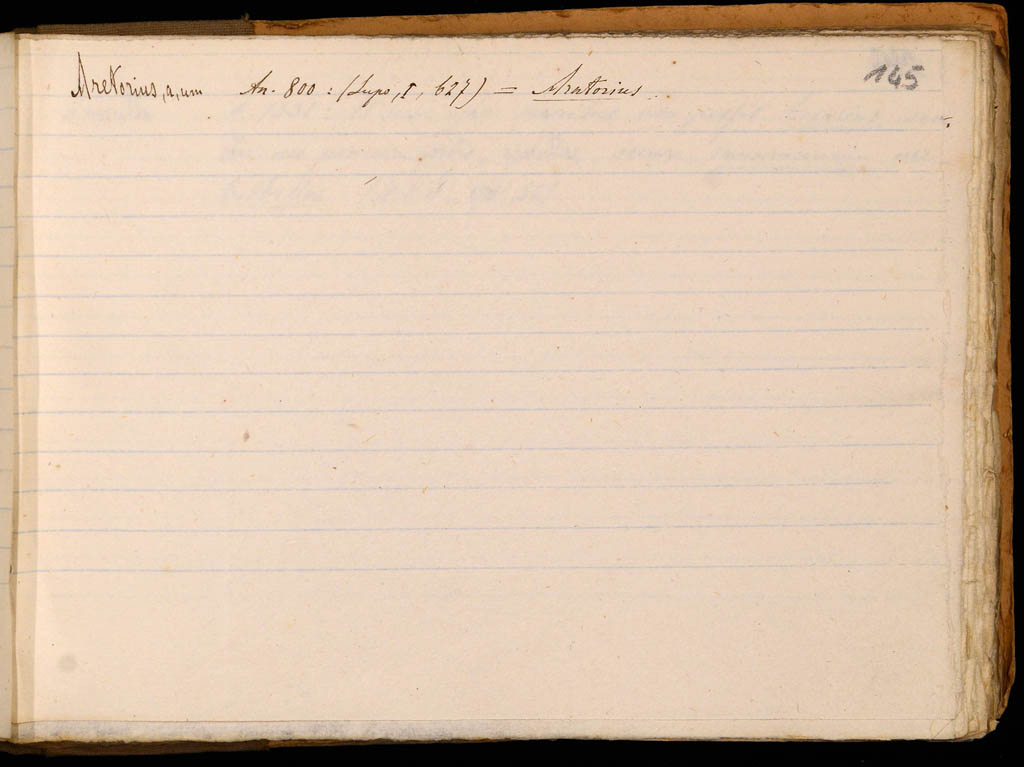 145
Aretorius, a, um An. 800 : (Lupo, I, 627) = Aratorius.